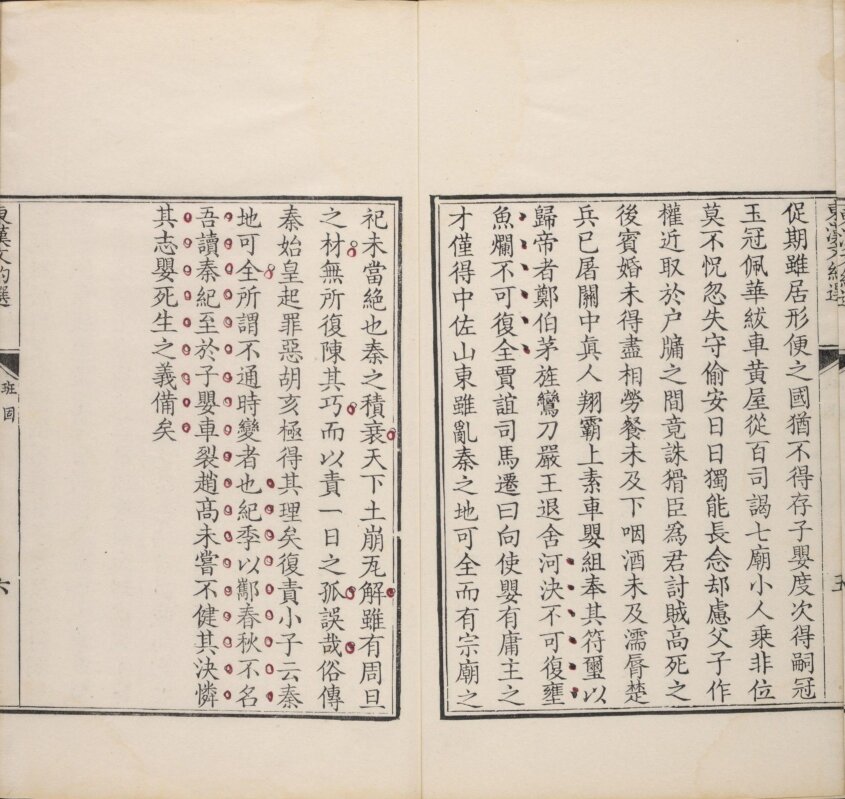 促期雖居形便之國猶不得存子嬰度次得嗣冠
玉冠佩華紱車黃屋從百司謁七廟小人乘非位
莫不怳忽失守偷安日日獨能長念却慮父子作
權近取於戶牖之間竟誅猾臣爲君討賊高死之
後賓婚未得盡相勞餐未及下咽酒未及濡脣楚
兵已屠關中眞人翔霸上素車嬰組奉其符璽以
歸帝者鄭伯茅旌鸞刀嚴王退舍河決不可復壅
魚爛不可復全賈誼司馬遷曰向使嬰有庸主之
才僅得中佐山東雖亂秦之地可全而有宗廟之
祀未當絶也秦之積衰天下土崩瓦解雖有周旦
之材無所復陳其巧而以責一日之孤誤哉俗傳
秦始皇起罪惡胡亥極得其理矣復責小子云秦
地可全所謂不通時變者也紀季以酅春秋不名
吾讀秦紀至於子嬰車裂趙高未嘗不健其決憐
其志嬰死生之義備矣
東漢文約選
班固
六